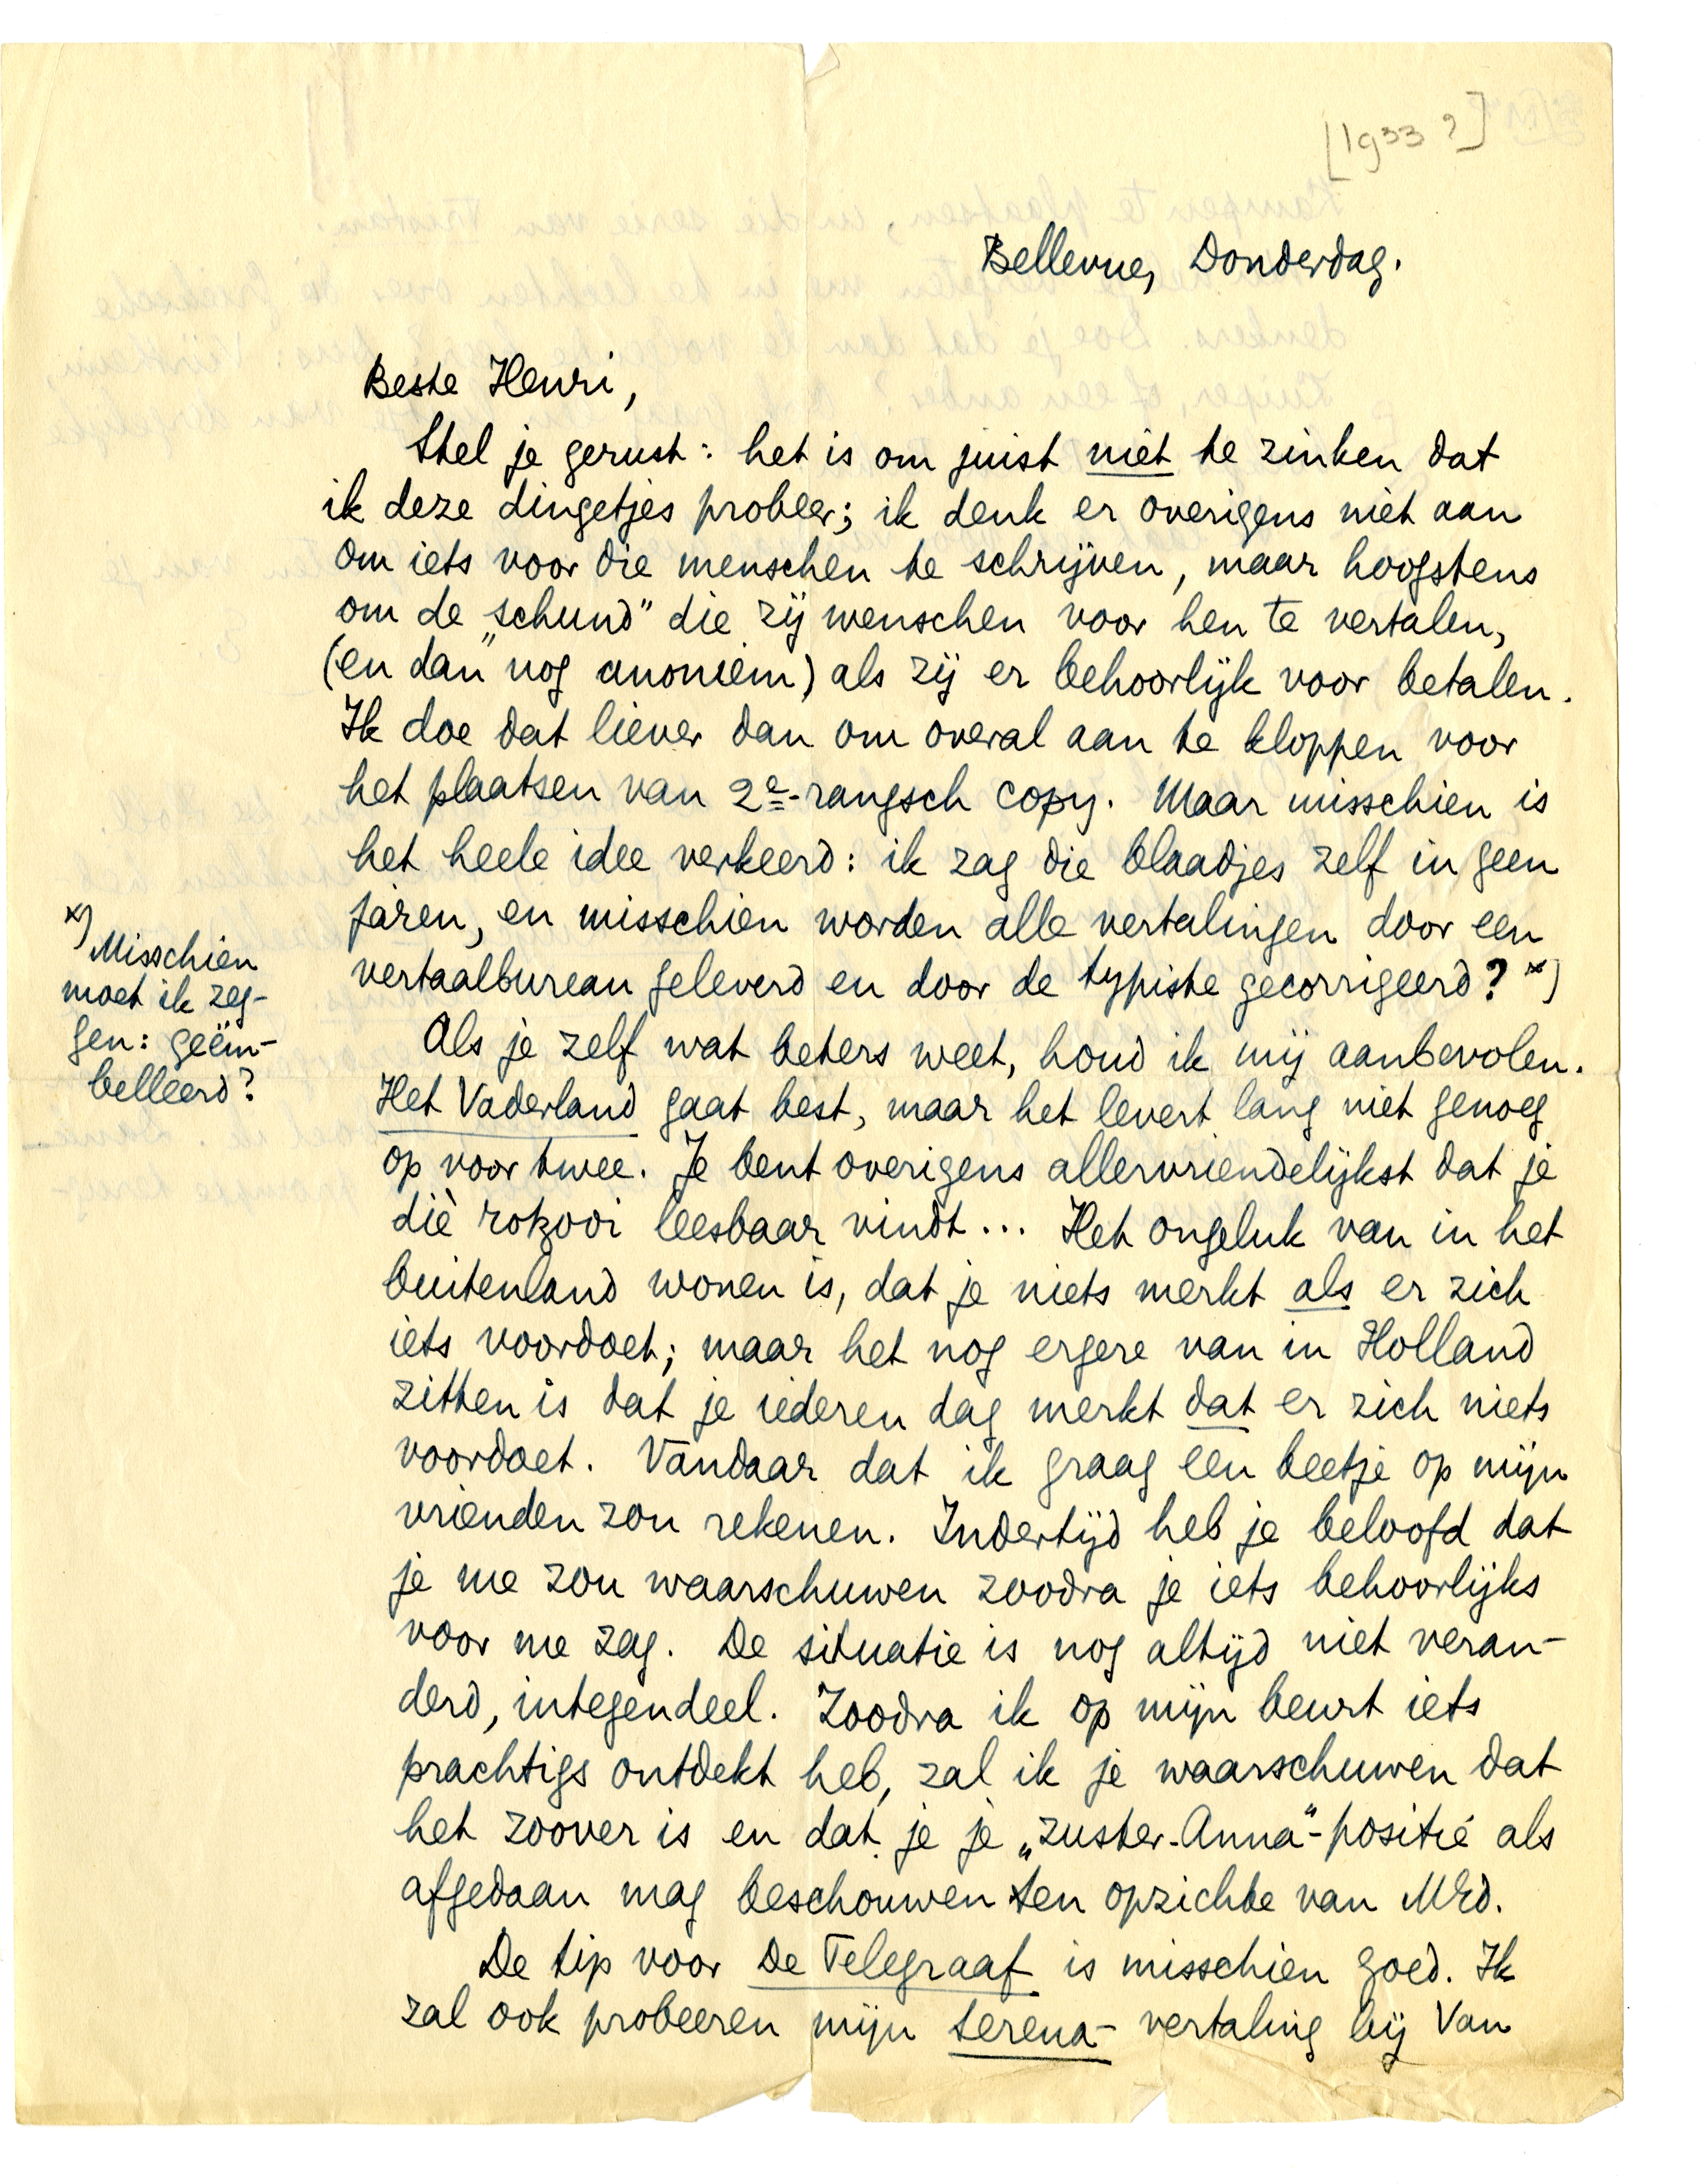 [1933?]
Bellevue, Donderdag.
Beste Henri,
Stel je gerust: het is om juist niet te zinken dat
ik deze dingetjes probeer; ik denk er overigens niet aan
om iets voor die menschen te schrijven, maar hoogstens
om de „schund” die zij wenschen voor hen te vertalen,
(en dan nog anoniem) als zij er behoorlijk voor betalen.
Ik doe dat liever dan om overal aan te kloppen voor
het plaatsen van 2e-rangsch copy. Maar misschien is
het heele idee verkeerd: ik zag die blaadjes zelf in geen
jaren, en misschien worden alle vertalingen door een
vertaalbureau geleverd en door de typiste gecorrigeerd? x)
x) Misschien
moet ik zeg-
gen: geëm-
belleerd?
Als je zelf wat beters weet, houd ik mij aanbevolen.
Het Vaderland gaat best, maar het levert lang niet genoeg
op voor twee. Je bent overigens allervriendelijkst dat je
diè rotzooi leesbaar vindt... Het ongeluk van in het
buitenland wonen is, dat je niets merkt als er zich
iets voordoet; maar het nog ergere van in Holland
zitten is dat je iederen dag merkt dat er zich niets
voordoet. Vandaar dat ik graag een beetje op mijn
vrienden zou rekenen. Indertijd heb je beloofd dat
je me zou waarschuwen zoodra je iets behoorlijks
voor me zag. De situatie is nog altijd niet veran-
derd, integendeel. Zoodra ik op mijn beurt iets
prachtigs ontdekt heb, zal ik je waarschuwen dat
het zoover is en dat je je „zuster-Anna”-positie als
afgedaan mag beschouwen ten opzichte van M
De tip voor De Telegraaf is misschien goed. Ik
zal ook probeeren mijn Serena-vertaling bij Van